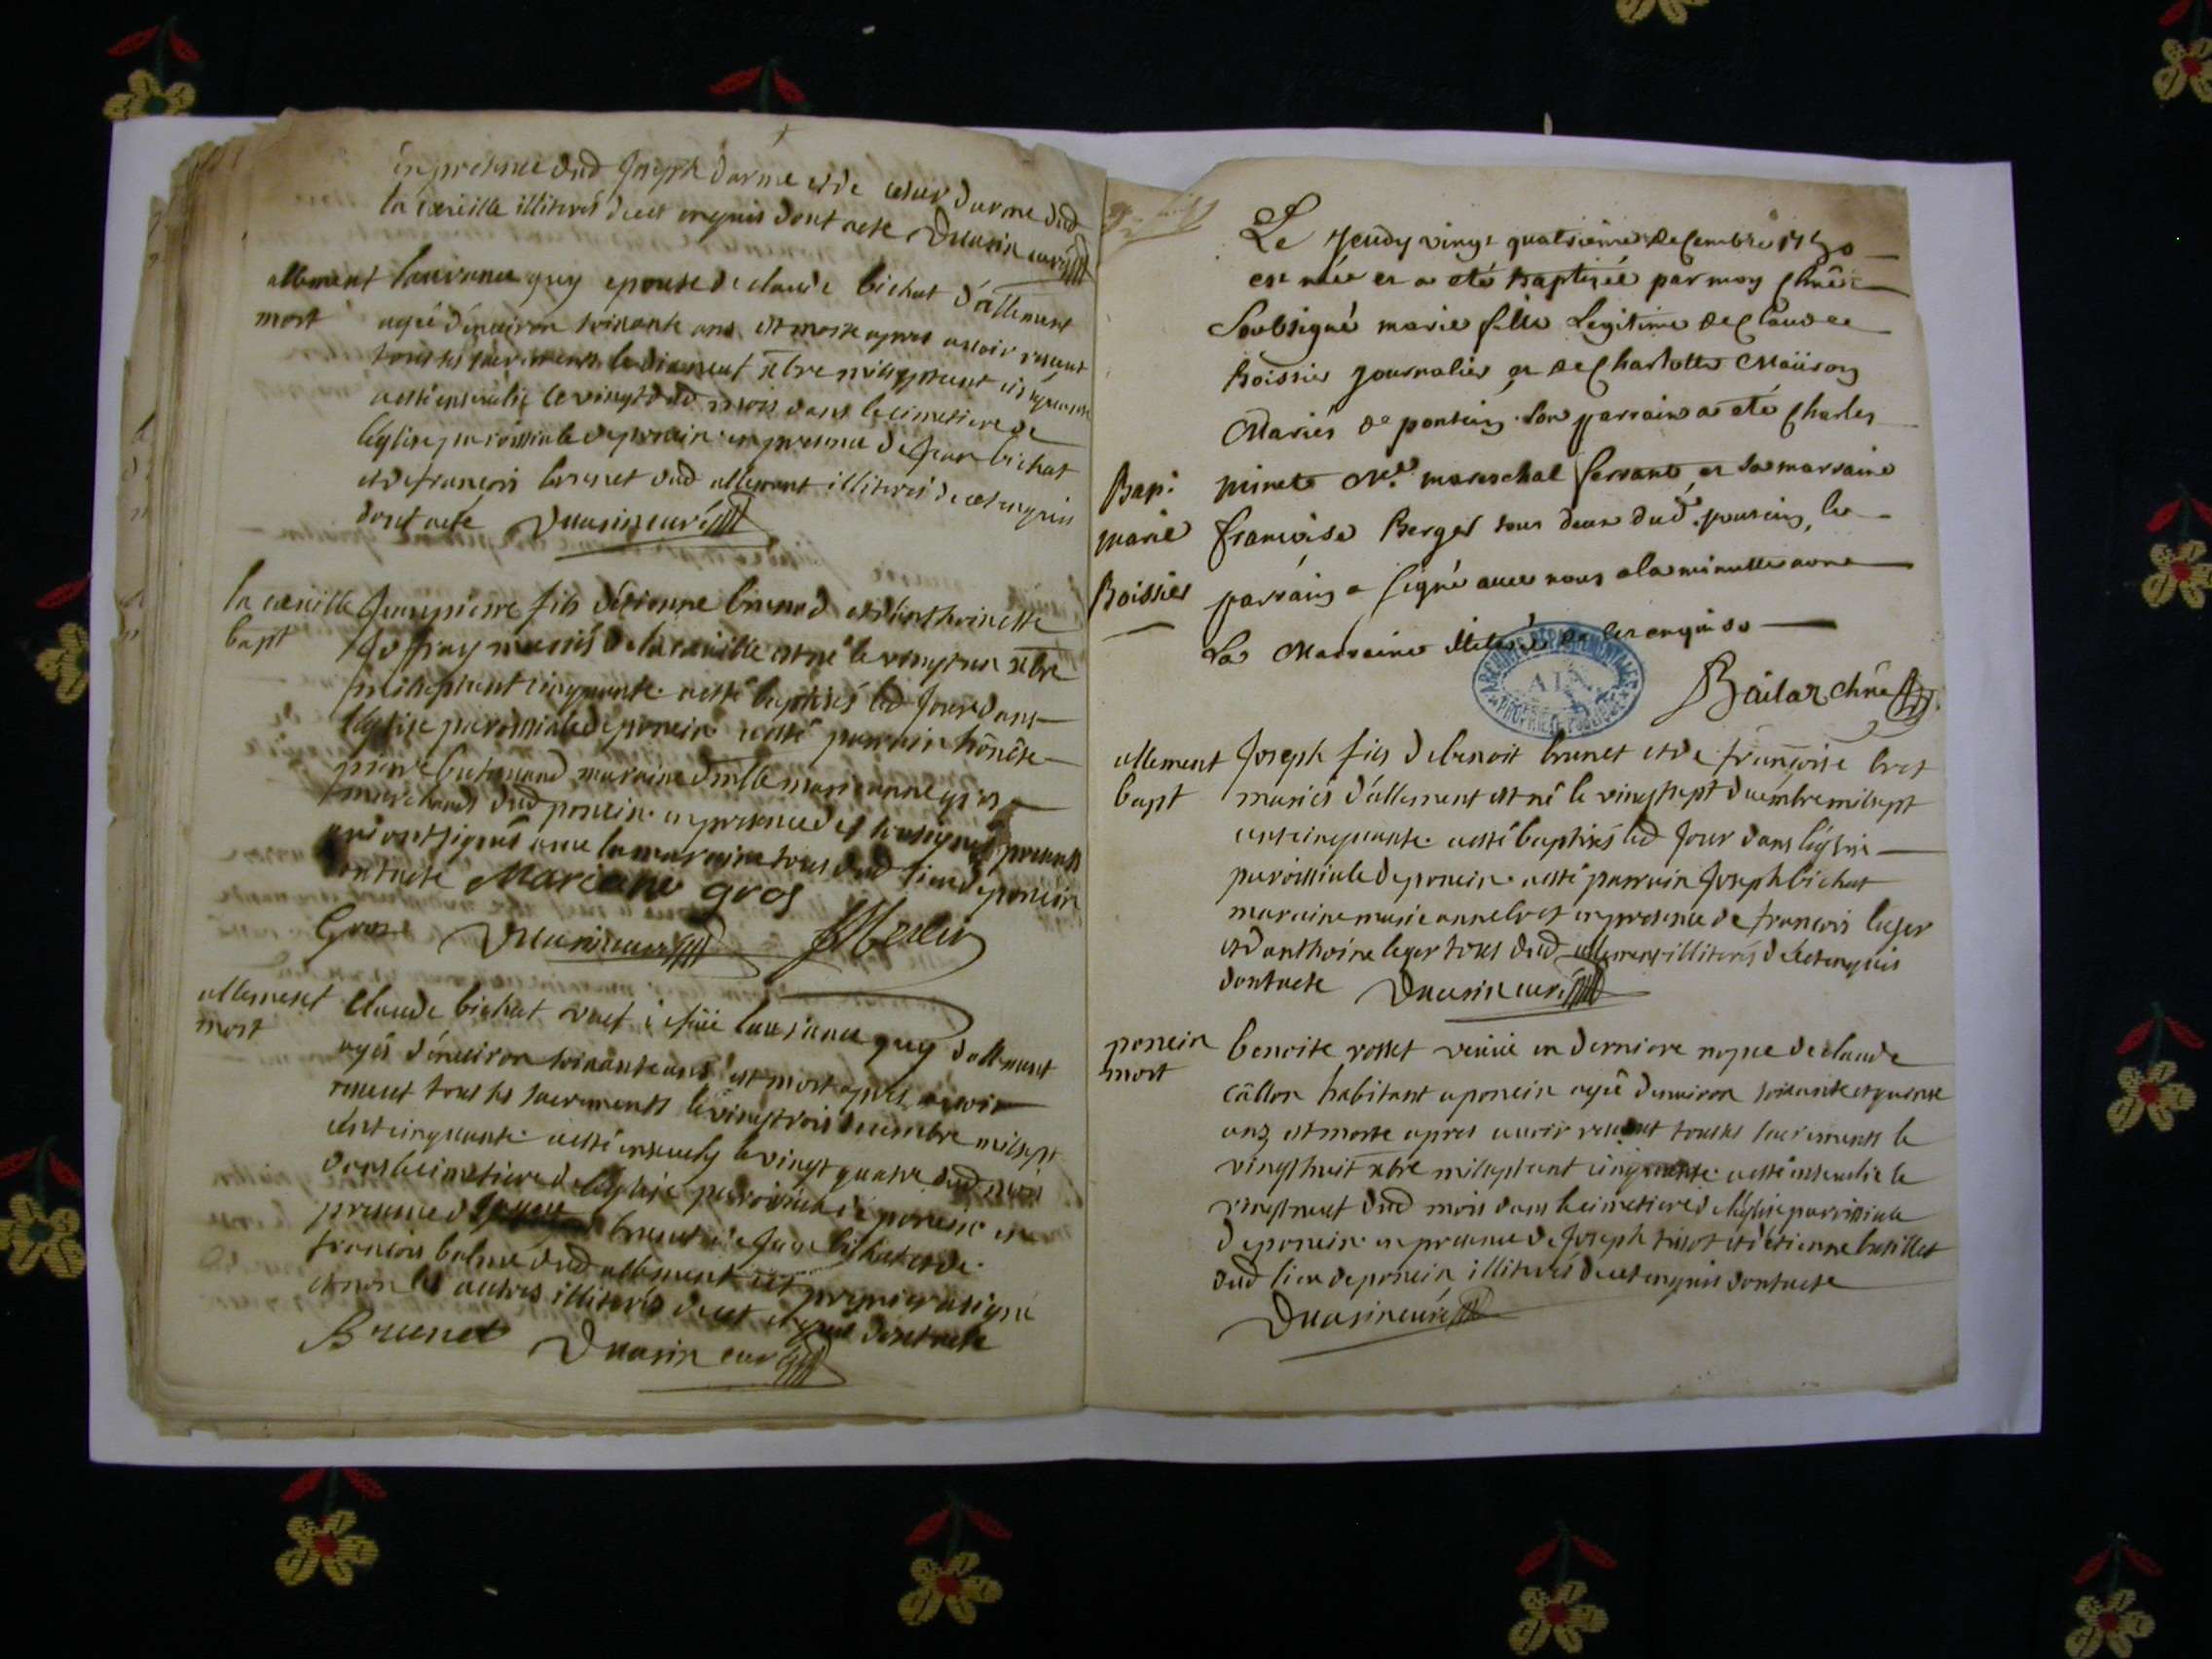 en presence dud Joseph darme et de cesar darme dud
la cœuille illiterés de ce enquis dont acte Duasin curé
allement laurance guy epouse de claude bichat d'allement
mort agée d'environ soixante ans est morte apres avoir receut
tous les sacrements le dixneuf xbre mil sept cent cinquante
a esté ensevelie le vingt dud mois dans le cimetiere de
l'église paroissiale de poncin en presence de Jean bichat
et de francois brunet dud allement illiterés de ce enquis
dont acte Duasin curé
la cœuille Jean pierre fils d'etienne brunod et d'anthoinette
bapt Joffray mariés de la cœuille est né le vingt un xbre
mil sept cent cinquante a esté baptisés led Jour dans
l'église paroissiale de poncin a esté parrain honête
pierre maraine dlle marianne gros
marchands dud poncin en presence des soussignés presents
qui ont signés avec la maraine tous dud lieu de poncin
dont acte Mariane gros
Gros Duasin curé Merlin
allement Claude bichat veuf de füe laurance guy d'allement
mort agés d'environ soixante ans est mort apres avoir
receut tous les sacrements le vingt trois decembre mil sept
cent cinquante a esté ensevely le vingt quatre dud mois
dans le cimetiere de l'église paroissiale de poncin en
presence de brunet de Jean bichat et de
francois balme dud allement signé
et non les autres illiterés de ce enquis dont acte
Brunet Duasin curé
Le Jeudy vingt quatrieme decembre 1750
est née et a eté baptisée par moy chñe
Soubsigné marie fille Legitime de Claude
Boissier Journalier et de Charlotte Maüron
Mariés de poncin. son parrain a eté Charles
Bap. pinet Me. mareschal ferrant et sa marraine
marie francoise Berger tous deux dud. poncin, le
Boissier parrain a signé avec nous a la minutte non
La Marraine illiterée de ce enquise
Bailar chñe
ARCHIVES DÉPARTEMENTALES
AIN
PROPRIÉTÉ PUBLIQUE
allement Joseph fils de benoit brunet et de françoise bret
bapt mariés d'allement est né le vingt sept decembre mil sept
cent cinquante a esté baptisés led Jour dans l'église
paroissiale de poncin a esté parrain Joseph bichat
maraine marie anne bret en presence de francois leger
et d'anthoine leger tous dud allement illiterés de ce enquis
dont acte Duasin curé
poncin benoite rosset veuve en derniere nopce de claude
mort câllon habitant a poncin agée d'environ soixante et quinze
ans est morte apres avoir receut tous les sacrements le
vingt huit xbre mil sept cent cinquante a esté ensevelie le
vingt neuf dud mois dans le cimetiere de l'église paroissiale
de poncin en presence de Joseph tissot et d'etienne basillet
dud lieu de poncin illiterés de ce enquis dont acte
Duasin curé